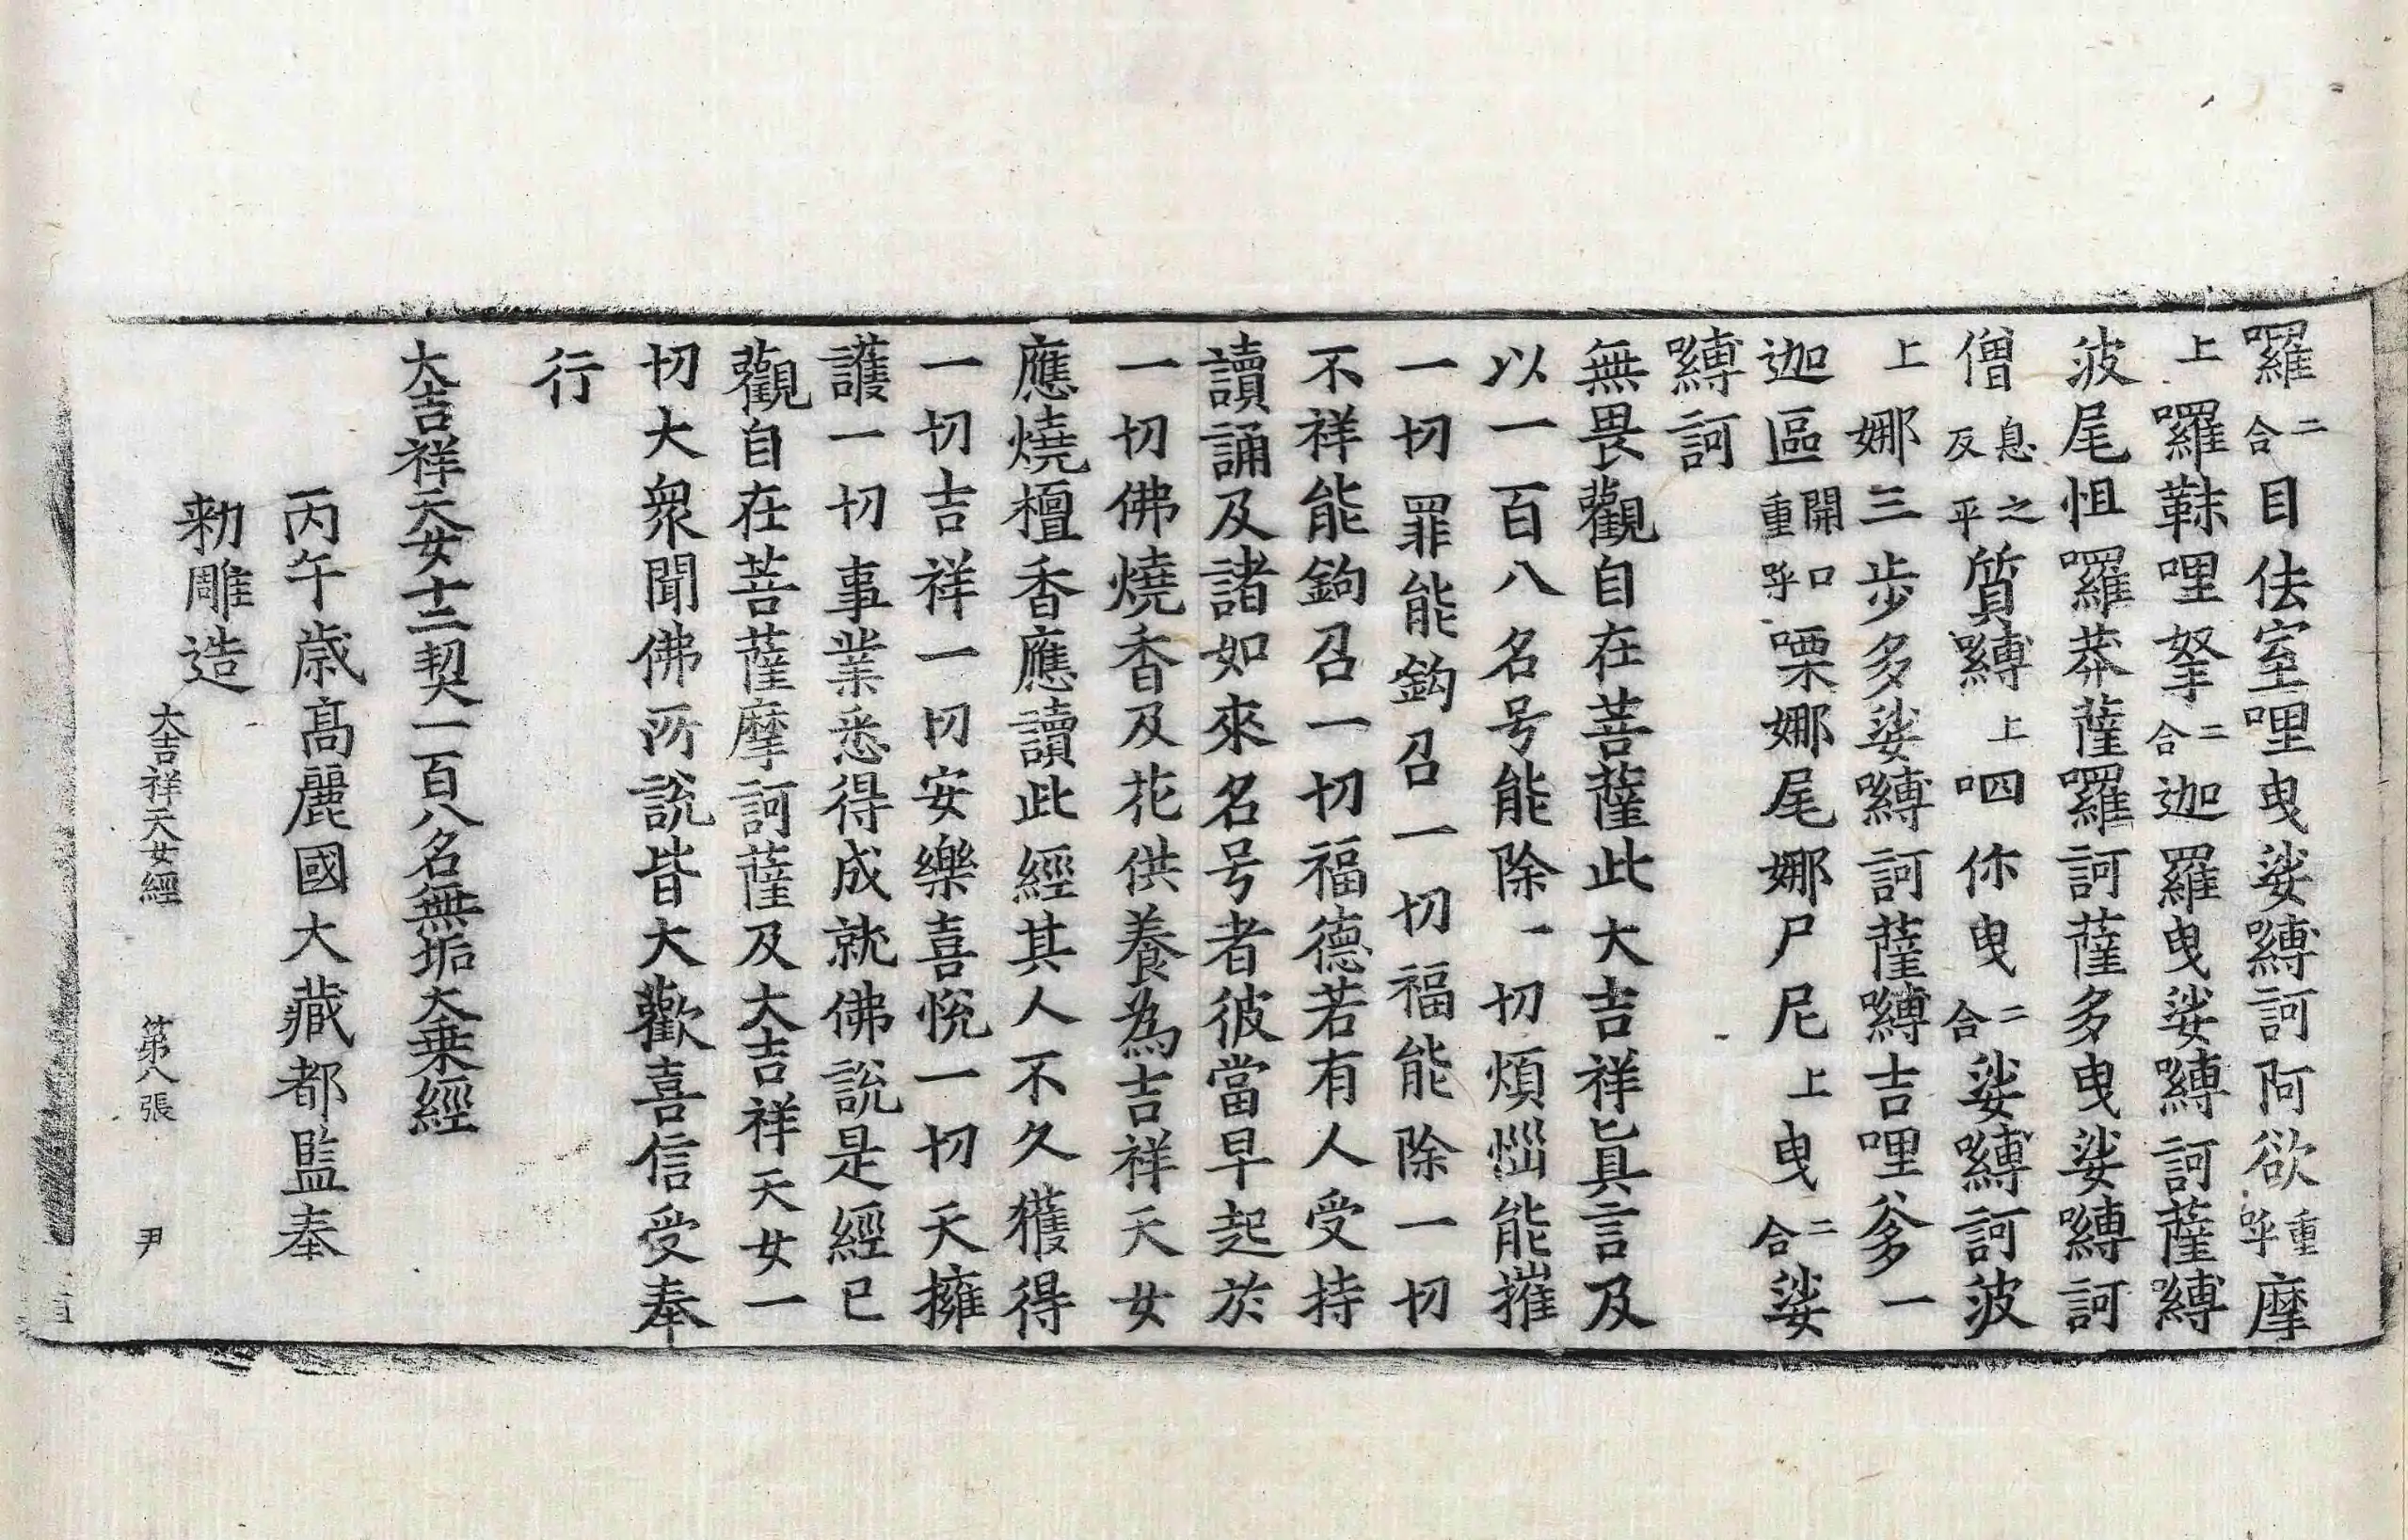 囉二合目佉室哩曳娑嚩訶阿欲重呼摩
上囉靺哩拏二合迦羅曳娑嚩訶薩嚩
波尾怛囉莽薩囉訶薩多曳娑嚩訶
僧息之反平質嚩上呬你曳二合娑嚩訶波
上娜三步多娑嚩訶薩嚩吉哩爹一
迦區開口重呼㗚娜尾娜尸尼上曳二合娑
嚩訶
無畏觀自在菩薩此大吉祥眞言及
以一百八名号能除一切煩惱能摧
一切罪能鈎召一切福能除一切
不祥能鉤召一切福德若有人受持
讀誦及諸如來名号者彼當早起於
一切佛燒香及花供養為吉祥天女
應燒檀香應讀此經其人不久獲得
一切吉祥一切安樂喜悅一切天擁
護一切事業悉得成就佛說是經已
觀自在菩薩摩訶薩及大吉祥天女一
切大衆聞佛所說皆大歡喜信受奉
行
大吉祥天女十二契一百八名無垢大乗經
丙午歳高麗國大藏都監奉
勑雕造
大吉祥天女經 第八張 尹